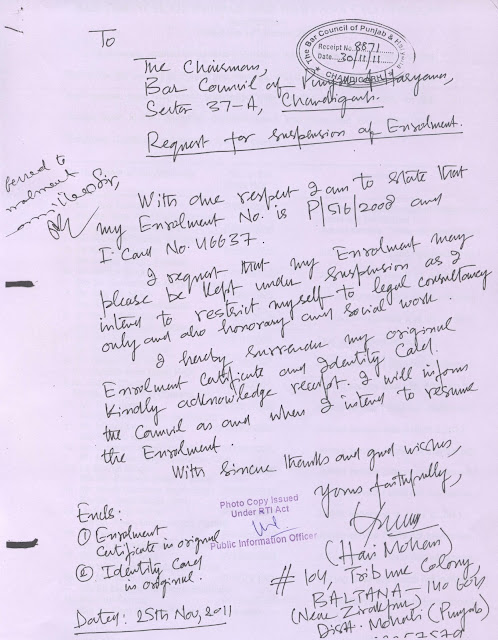 To
The Bar Council of Punjab & Haryana
Receipt No. 8871
Date 30/11/11
CHANDIGARH
The Chairman,
Bar Council of Punjab & Haryana,
Sector 37-A, Chandigarh.
Request for suspension of Enrolment.
Sir,
With due respect I am to state that
my Enrolment No. is P/516/2008 and
I. Card No. 46637.
I request that my Enrolment may
please be kept under suspension as I
intend to restrict myself to legal consultancy
only and also honorary and social work.
I hereby surrender my original
Enrolment Certificate and Identity Card.
Kindly acknowledge receipt. I will inform
the Council as and when I intend to resume
the Enrolment.
With sincere thanks and good wishes,
Yours faithfully,
Photo Copy Issued
Under RTI Act
Public Information Officer
Encls:
① Enrolment
Certificate in original
② Identity Card
in original.
Dated: 25th Nov, 2011
(Hari Mohan)
# 104, Tribune Colony,
BALTANA - 140 604
(Near Zirakpur)
Distt. Mohali (Punjab)